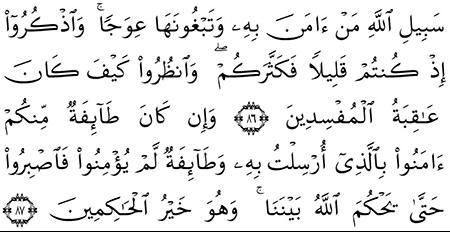 سَبِيلِ ٱللَّهِ مَنْ ءَامَنَ بِهِۦ وَتَبْغُونَهَا عِوَجًا ۚ وَٱذْكُرُوٓا۟
إِذْ كُنتُمْ قَلِيلًا فَكَثَّرَكُمْ ۖ وَٱنظُرُوا۟ كَيْفَ كَانَ
عَـٰقِبَةُ ٱلْمُفْسِدِينَ ٨٦ وَإِن كَانَ طَآئِفَةٌ مِّنكُمْ
ءَامَنُوا۟ بِٱلَّذِىٓ أُرْسِلْتُ بِهِۦ وَطَآئِفَةٌ لَّمْ يُؤْمِنُوا۟ فَٱصْبِرُوا۟
حَتَّىٰ يَحْكُمَ ٱللَّهُ بَيْنَنَا ۚ وَهُوَ خَيْرُ ٱلْحَـٰكِمِينَ ٨٧